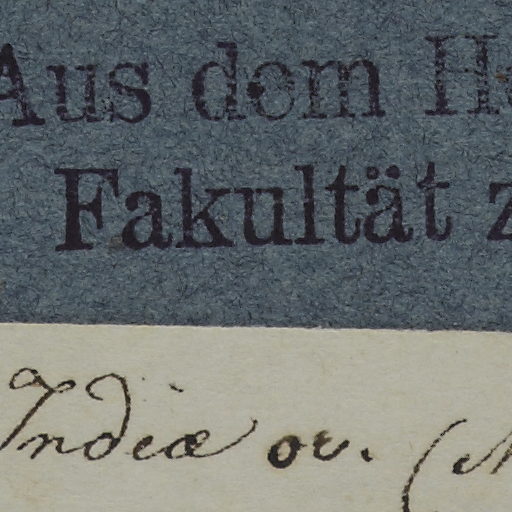 Aus dem He
Fakultät z
Indiæ or. (